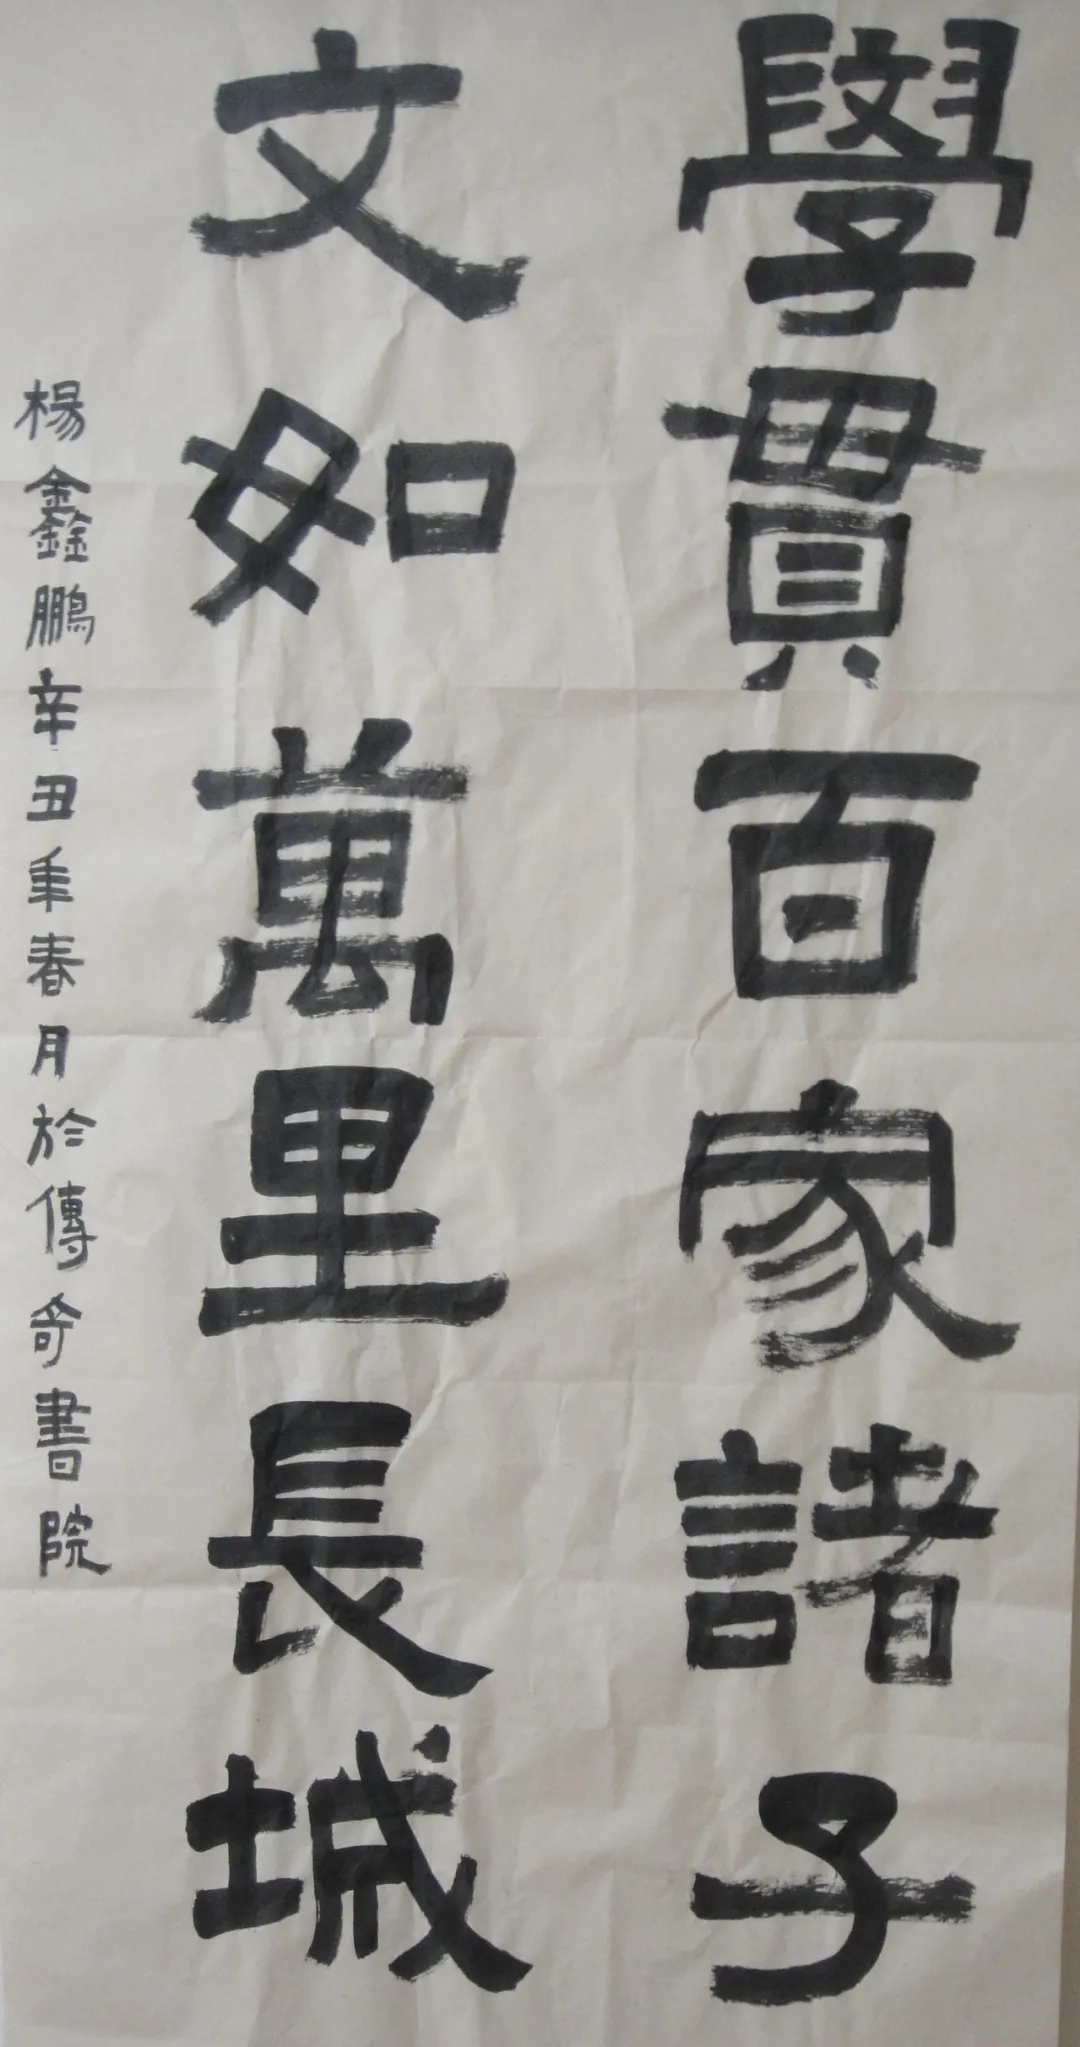 學貫百家諸子
文如萬里長城
楊鑫鵬辛丑年春月於傳奇書院